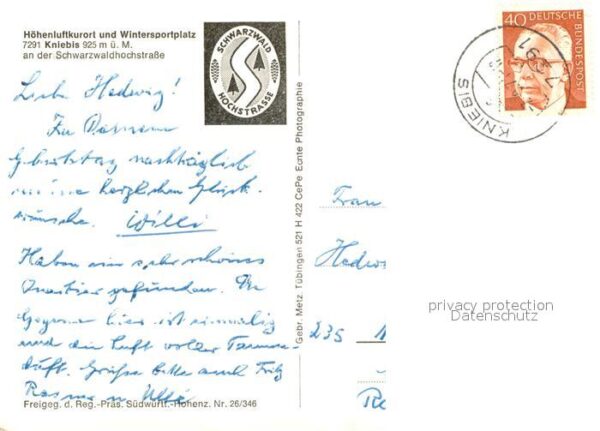 Höhenluftkurort und Wintersportplatz
7291 Kniebis 925 m ü. M.
an der Schwarzwaldhochstraße
SCHWARZWALD
HOCHSTRASSE
Liebe Hedwig!
Zu Deinem
Geburtstag nachträglich
meine herzlichen Glück-
wünsche. Willi
Haben ein sehr schönes
Quartier gefunden. Die
Gegend hier ist einmalig
und die Luft voller Tannen-
duft. Grüße bitte auch Fritz
Freigeg. d. Reg.-Präs. Südwürtt.-Hohenz. Nr. 26/346
Gebr. Metz Tübingen 521 H 422 CePe Echte Photographie
40 DEUTSCHE BUNDESPOST
7291
KNIEBIS
Frau
Hedwi
235
privacy protection
Datenschutz